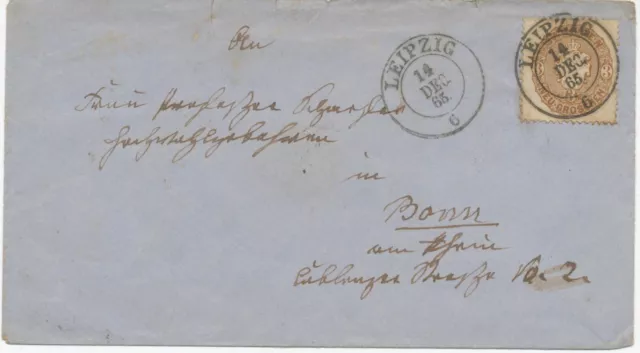 An
LEIPZIG
14
DEC.
65.
6
LEIPZIG
14
DEC.
65.
6
3
Frau Professor
Hochwohlgeboren
in
Bonn
am Rhein
Coblenzer Straße No. 2.